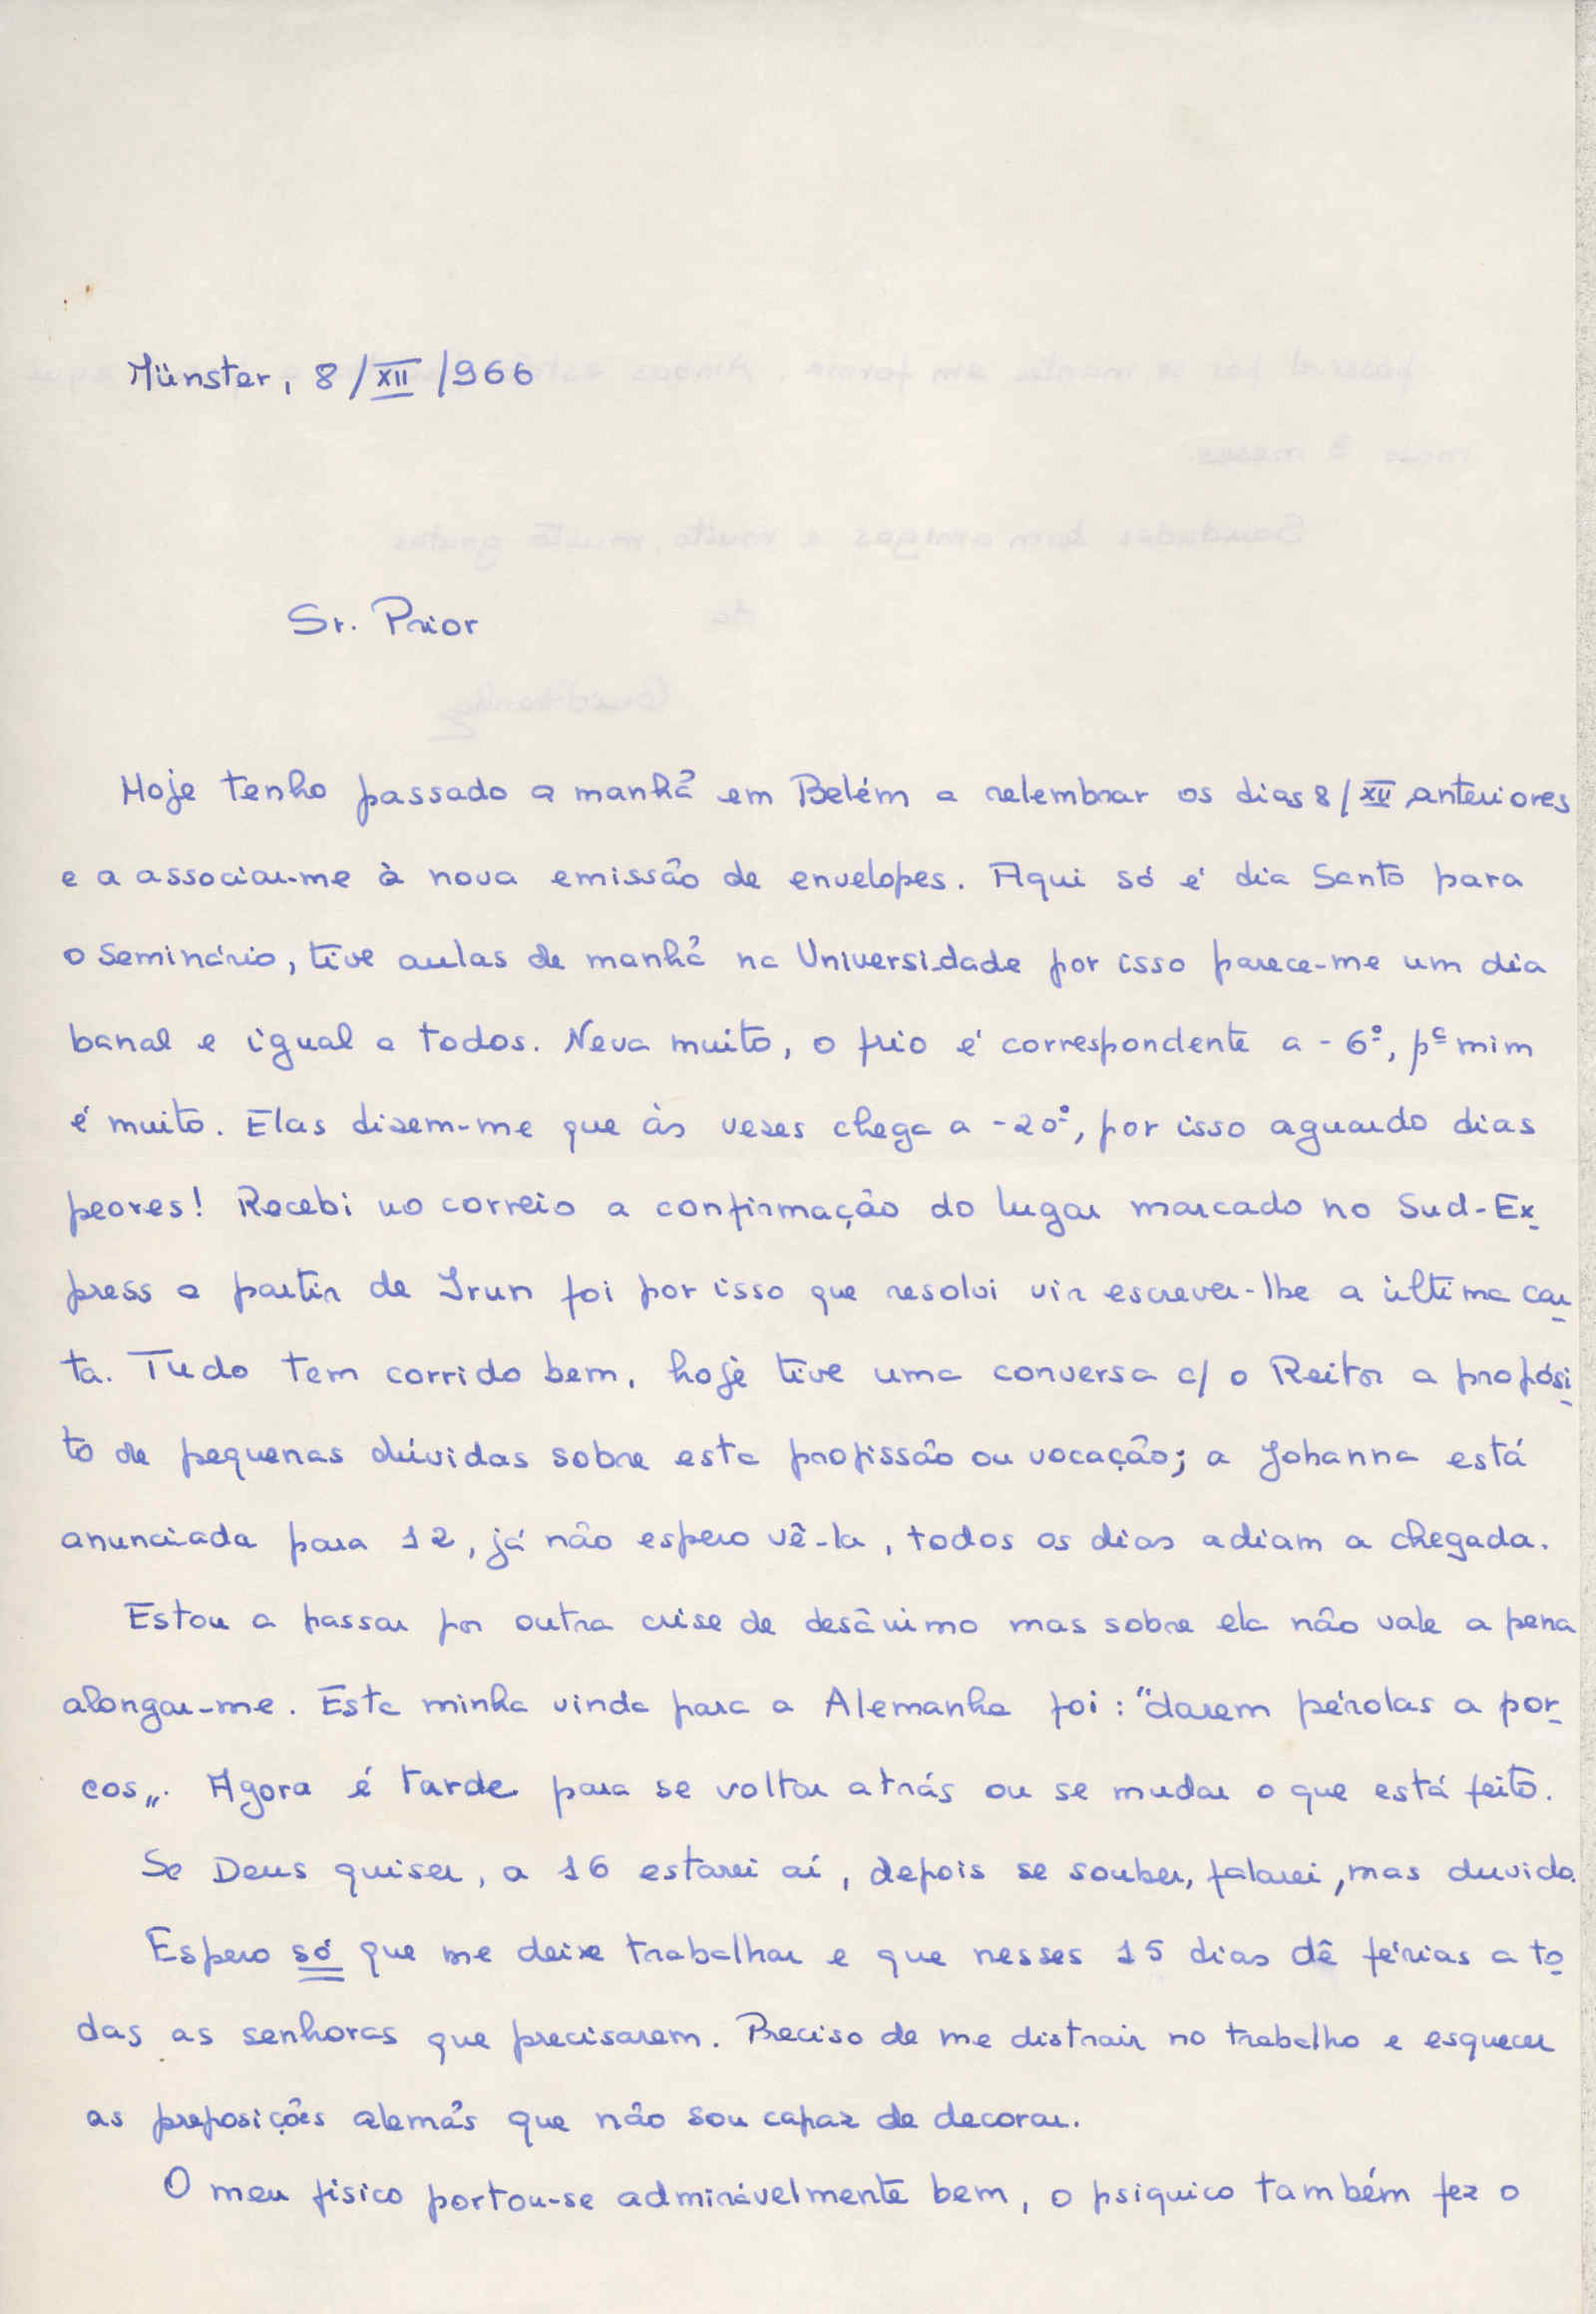 Münster, 8/XII/966
Sr. Prior
Hoje tenho passado a manhã em Belém a relembrar os dias 8/XII anteriores
e a associar-me à nova emissão de envelopes. Aqui só é dia Santo para
o Seminário, tive aulas de manhã na Universidade por isso parece-me um dia
banal e igual a todos. Neva muito, o frio é correspondente a -6º, pª mim
é muito. Elas dizem-me que às vezes chega a -20º, por isso aguardo dias
peores! Recebi no correio a confirmação do lugar marcado no Sud-Ex
press a partir de Irun foi por isso que resolvi vir escrever-lhe a última car
ta. Tudo tem corrido bem, hoje tive uma conversa c/ o Reitor a propósi
to de pequenas dúvidas sobre esta profissão ou vocação; a Johanna está
anunciada para 12, já não espero vê-la, todos os dias adiam a chegada.
Estou a passar por outra crise de desânimo mas sobre ela não vale a pena
alongar-me. Esta minha vinda para a Alemanha foi: "darem pérolas a por
cos„. Agora é tarde para se voltar atrás ou se mudar o que está feito.
Se Deus quiser, a 16 estarei aí, depois se souber, falarei, mas duvido.
Espero só que me deixe trabalhar e que nesses 15 dias dê férias a to
das as senhoras que precisarem. Preciso de me distrair no trabalho e esquecer
as preposições alemãs que não sou capaz de decorar.
O meu físico portou-se admiràvelmente bem, o psiquico também fez o